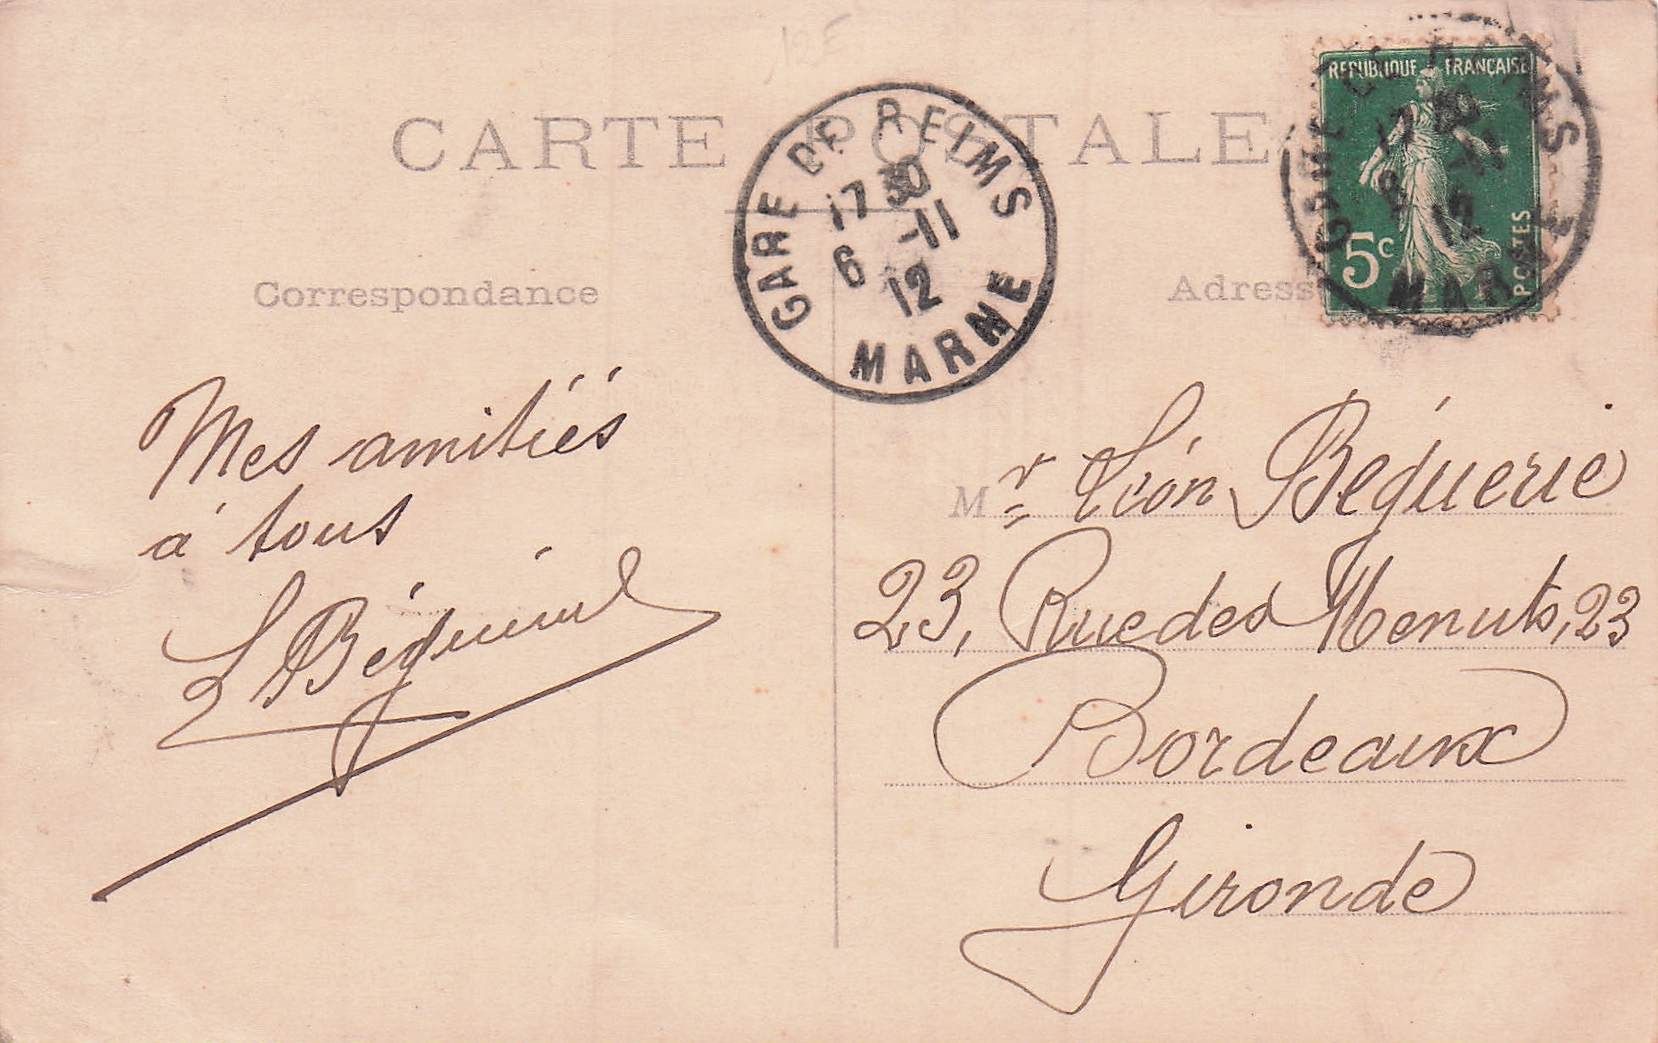 12E
CARTE POSTALE
GARE DE REIMS
17 30
6 -11
12
MARNE
REPUBLIQUE FRANÇAISE
5c
POSTES
17 30
12
MARNE
Correspondance
Adresse
Mes amitiés
à tous
L Béguerie
Mr Léon Béguerie
23, Rue des Menuts, 23
Bordeaux
Gironde